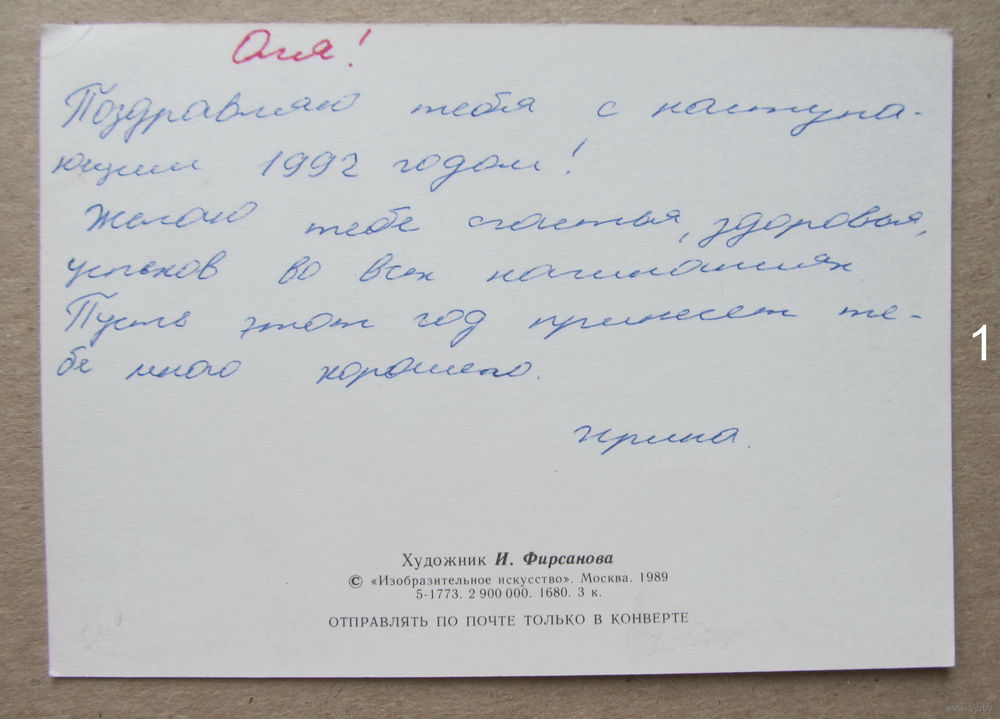 Оля!
Поздравляю тебя с наступа-
ющим 1992 годом!
Желаю тебе счастья, здоровья,
успехов во всех начинаниях
Пусть этот год принесет те-
бе много хорошего.
Ирина.
1
Художник И. Фирсанова
© «Изобразительное искусство». Москва. 1989
5-1773. 2 900 000. 1680. 3 к.
ОТПРАВЛЯТЬ ПО ПОЧТЕ ТОЛЬКО В КОНВЕРТЕ
www.ay.by